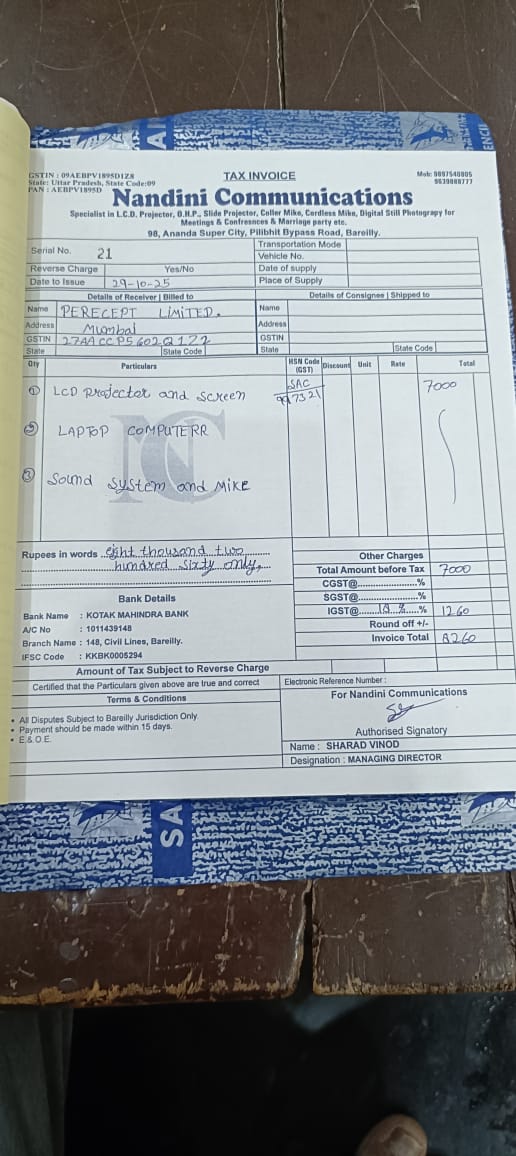 GSTIN : 09AEBPV1895D1Z8
State: Uttar Pradesh, State Code:09
PAN : AEBPV1895D
TAX INVOICE
Mob: 9897548805
9639888777
Nandini Communications
Specialist in L.C.D. Projector, O.H.P., Slide Projector, Coller Mike, Cordless Mike, Digital Still Photograpy for
Meetings & Confreances & Marriage party etc.
98, Ananda Super City, Pilibhit Bypass Road, Bareilly.
Serial No. 21
Transportation Mode
Vehicle No.
Reverse Charge Yes/No
Date of supply
Date to Issue 29-10-25
Place of Supply
Details of Receiver | Billed to
Details of Consignee | Shipped to
Name PERECEPT LIMITED.
Name
Address Mumbai
Address
GSTIN 27AACCP5602Q1Z2
GSTIN
State State Code
State State Code
Qty Particulars HSN Code (GST) Discount Unit Rate Total
① LCD projector and screen SAC 997321 7000
② LAPTOP COMPUTERR
③ Sound system and MIKE
NC
Rupees in words eight thousand two
hundred sixty only,
Other Charges
Total Amount before Tax 7000
CGST@....................%
SGST@....................%
IGST@.......18 %....% 1260
Round off +/-
Invoice Total 8260
Bank Details
Bank Name : KOTAK MAHINDRA BANK
A/C No : 1011439148
Branch Name : 148, Civil Lines, Bareilly.
IFSC Code : KKBK0005294
Amount of Tax Subject to Reverse Charge
Certified that the Particulars given above are true and correct
Electronic Reference Number :
Terms & Conditions
• All Disputes Subject to Bareilly Jurisdiction Only.
• Payment should be made within 15 days.
• E.& O.E.
For Nandini Communications
Authorised Signatory
Name : SHARAD VINOD
Designation : MANAGING DIRECTOR
SA